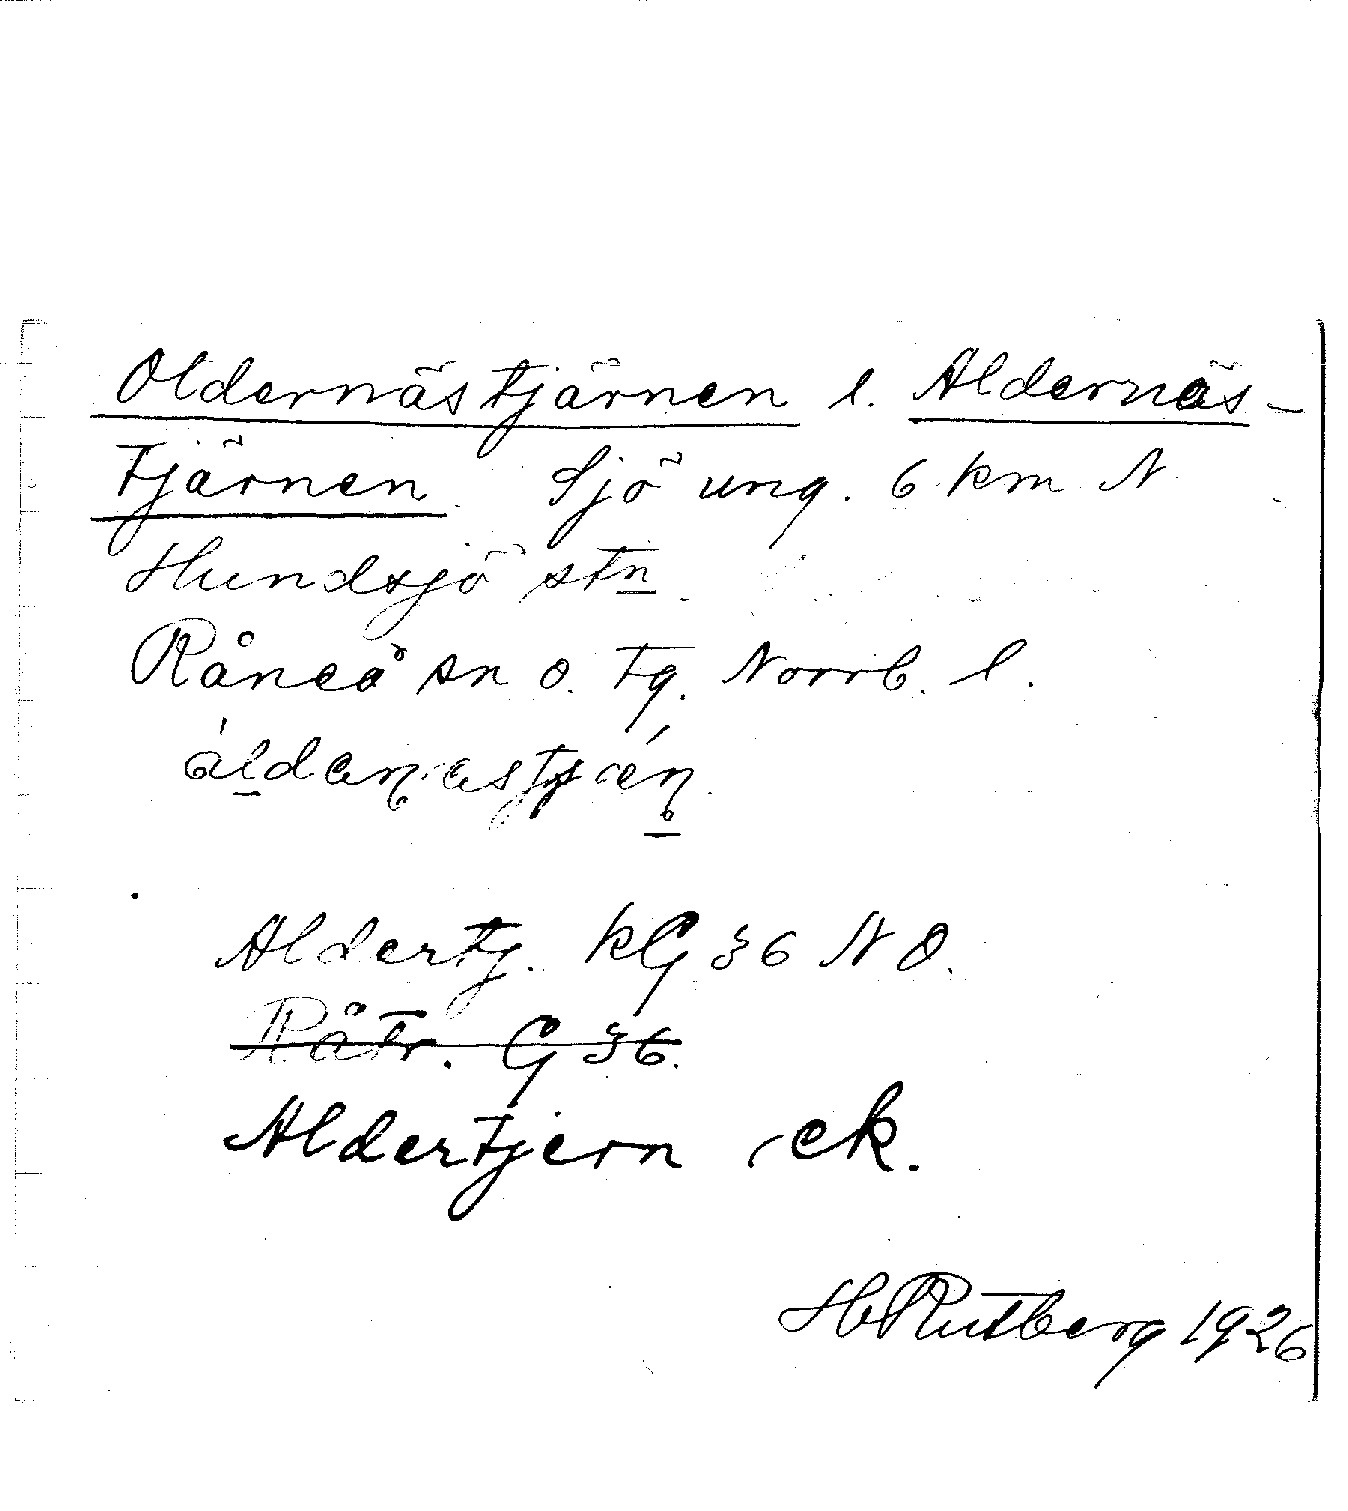 Oldernästjärnen l. Aldernäs-
tjärnen. Sjö ung. 6 km N
Hundsjö stn.
Råneå sn o. tg. Norrb. l.
Aldertj. kG 36 NO.
Råtr. G 36.
Aldertjern ek.
H Rutberg 1926